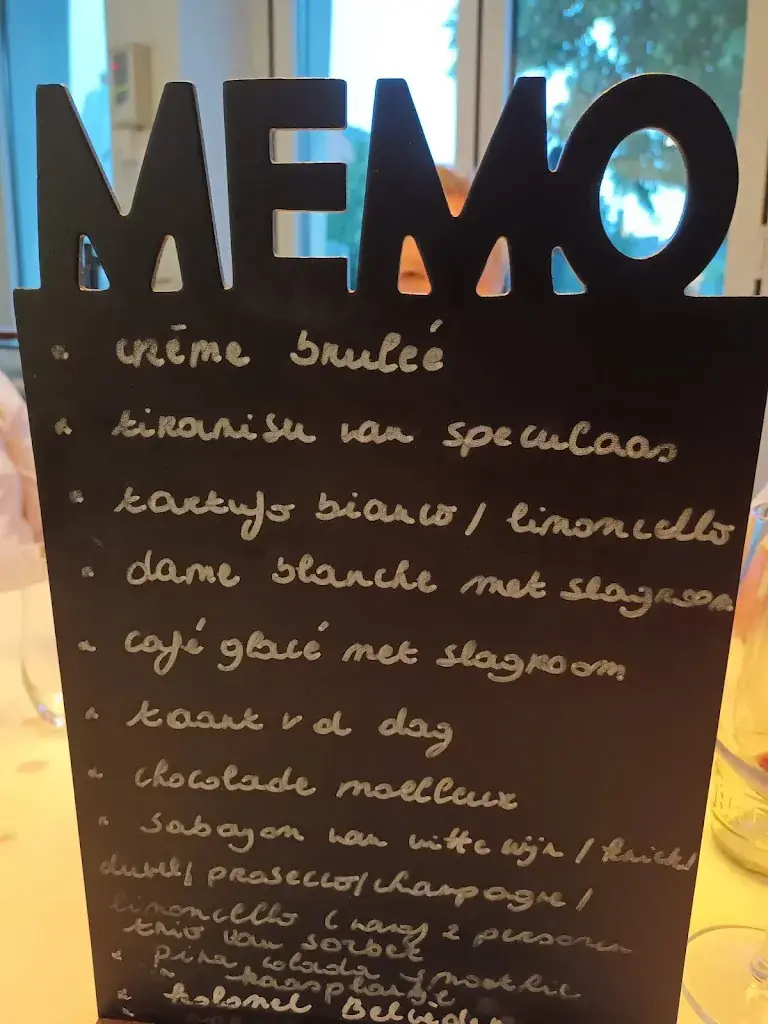 MEMO
crème bruleé
tiramisu van speculaas
tartufo bianco / limoncello
dame blanche met slagroom
café glacé met slagroom
taart v d dag
chocolade moelleux
sabayon van witte wijn / kriek/
duvel/ prosecco/champagne/
limoncello ( vanaf 2 personen
trio van sorbet
pina colada smoothie
kaasplankje
kolonel Belvédère